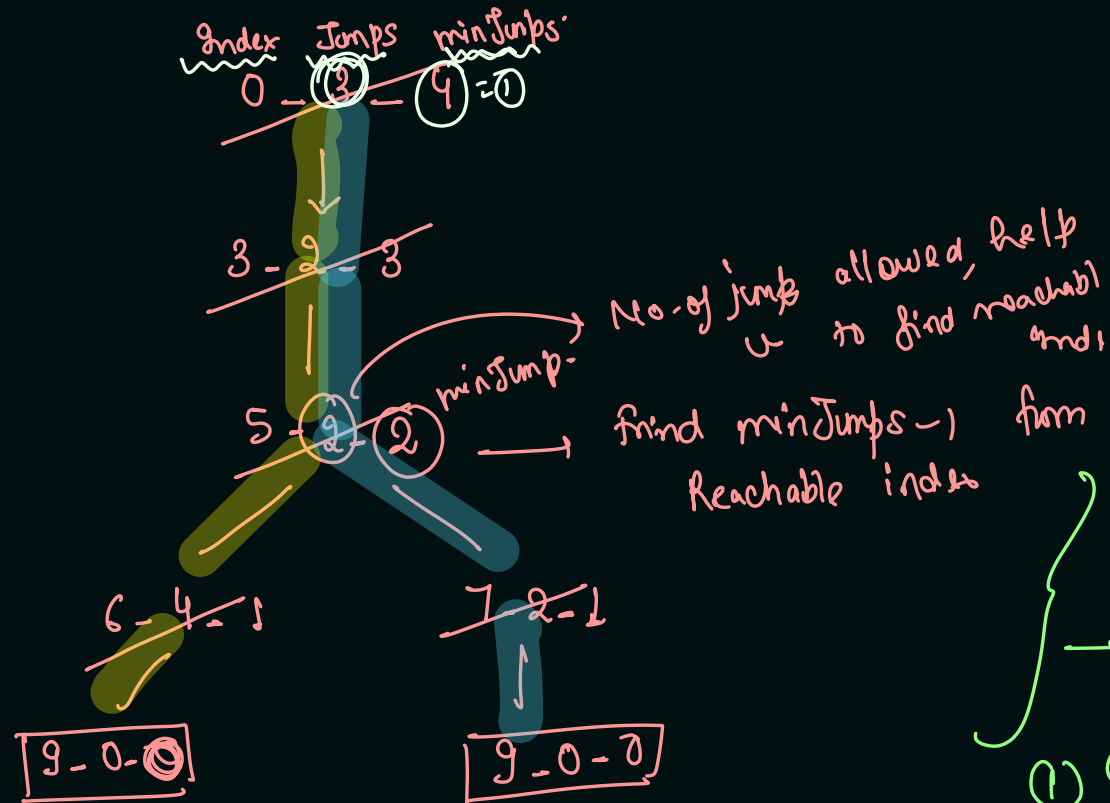 Index Jumps minJumps.
0 - 3 - 4 = 1
3 - 2 - 3
No. of jump allowed, help
to find reachabl
indi
minJump -
5 - 2 - 2
Find minJumps -1 from
Reachable index
6 - 4 - 1
7 - 2 - 1
9 - 0 - 0
9 - 0 - 0
1